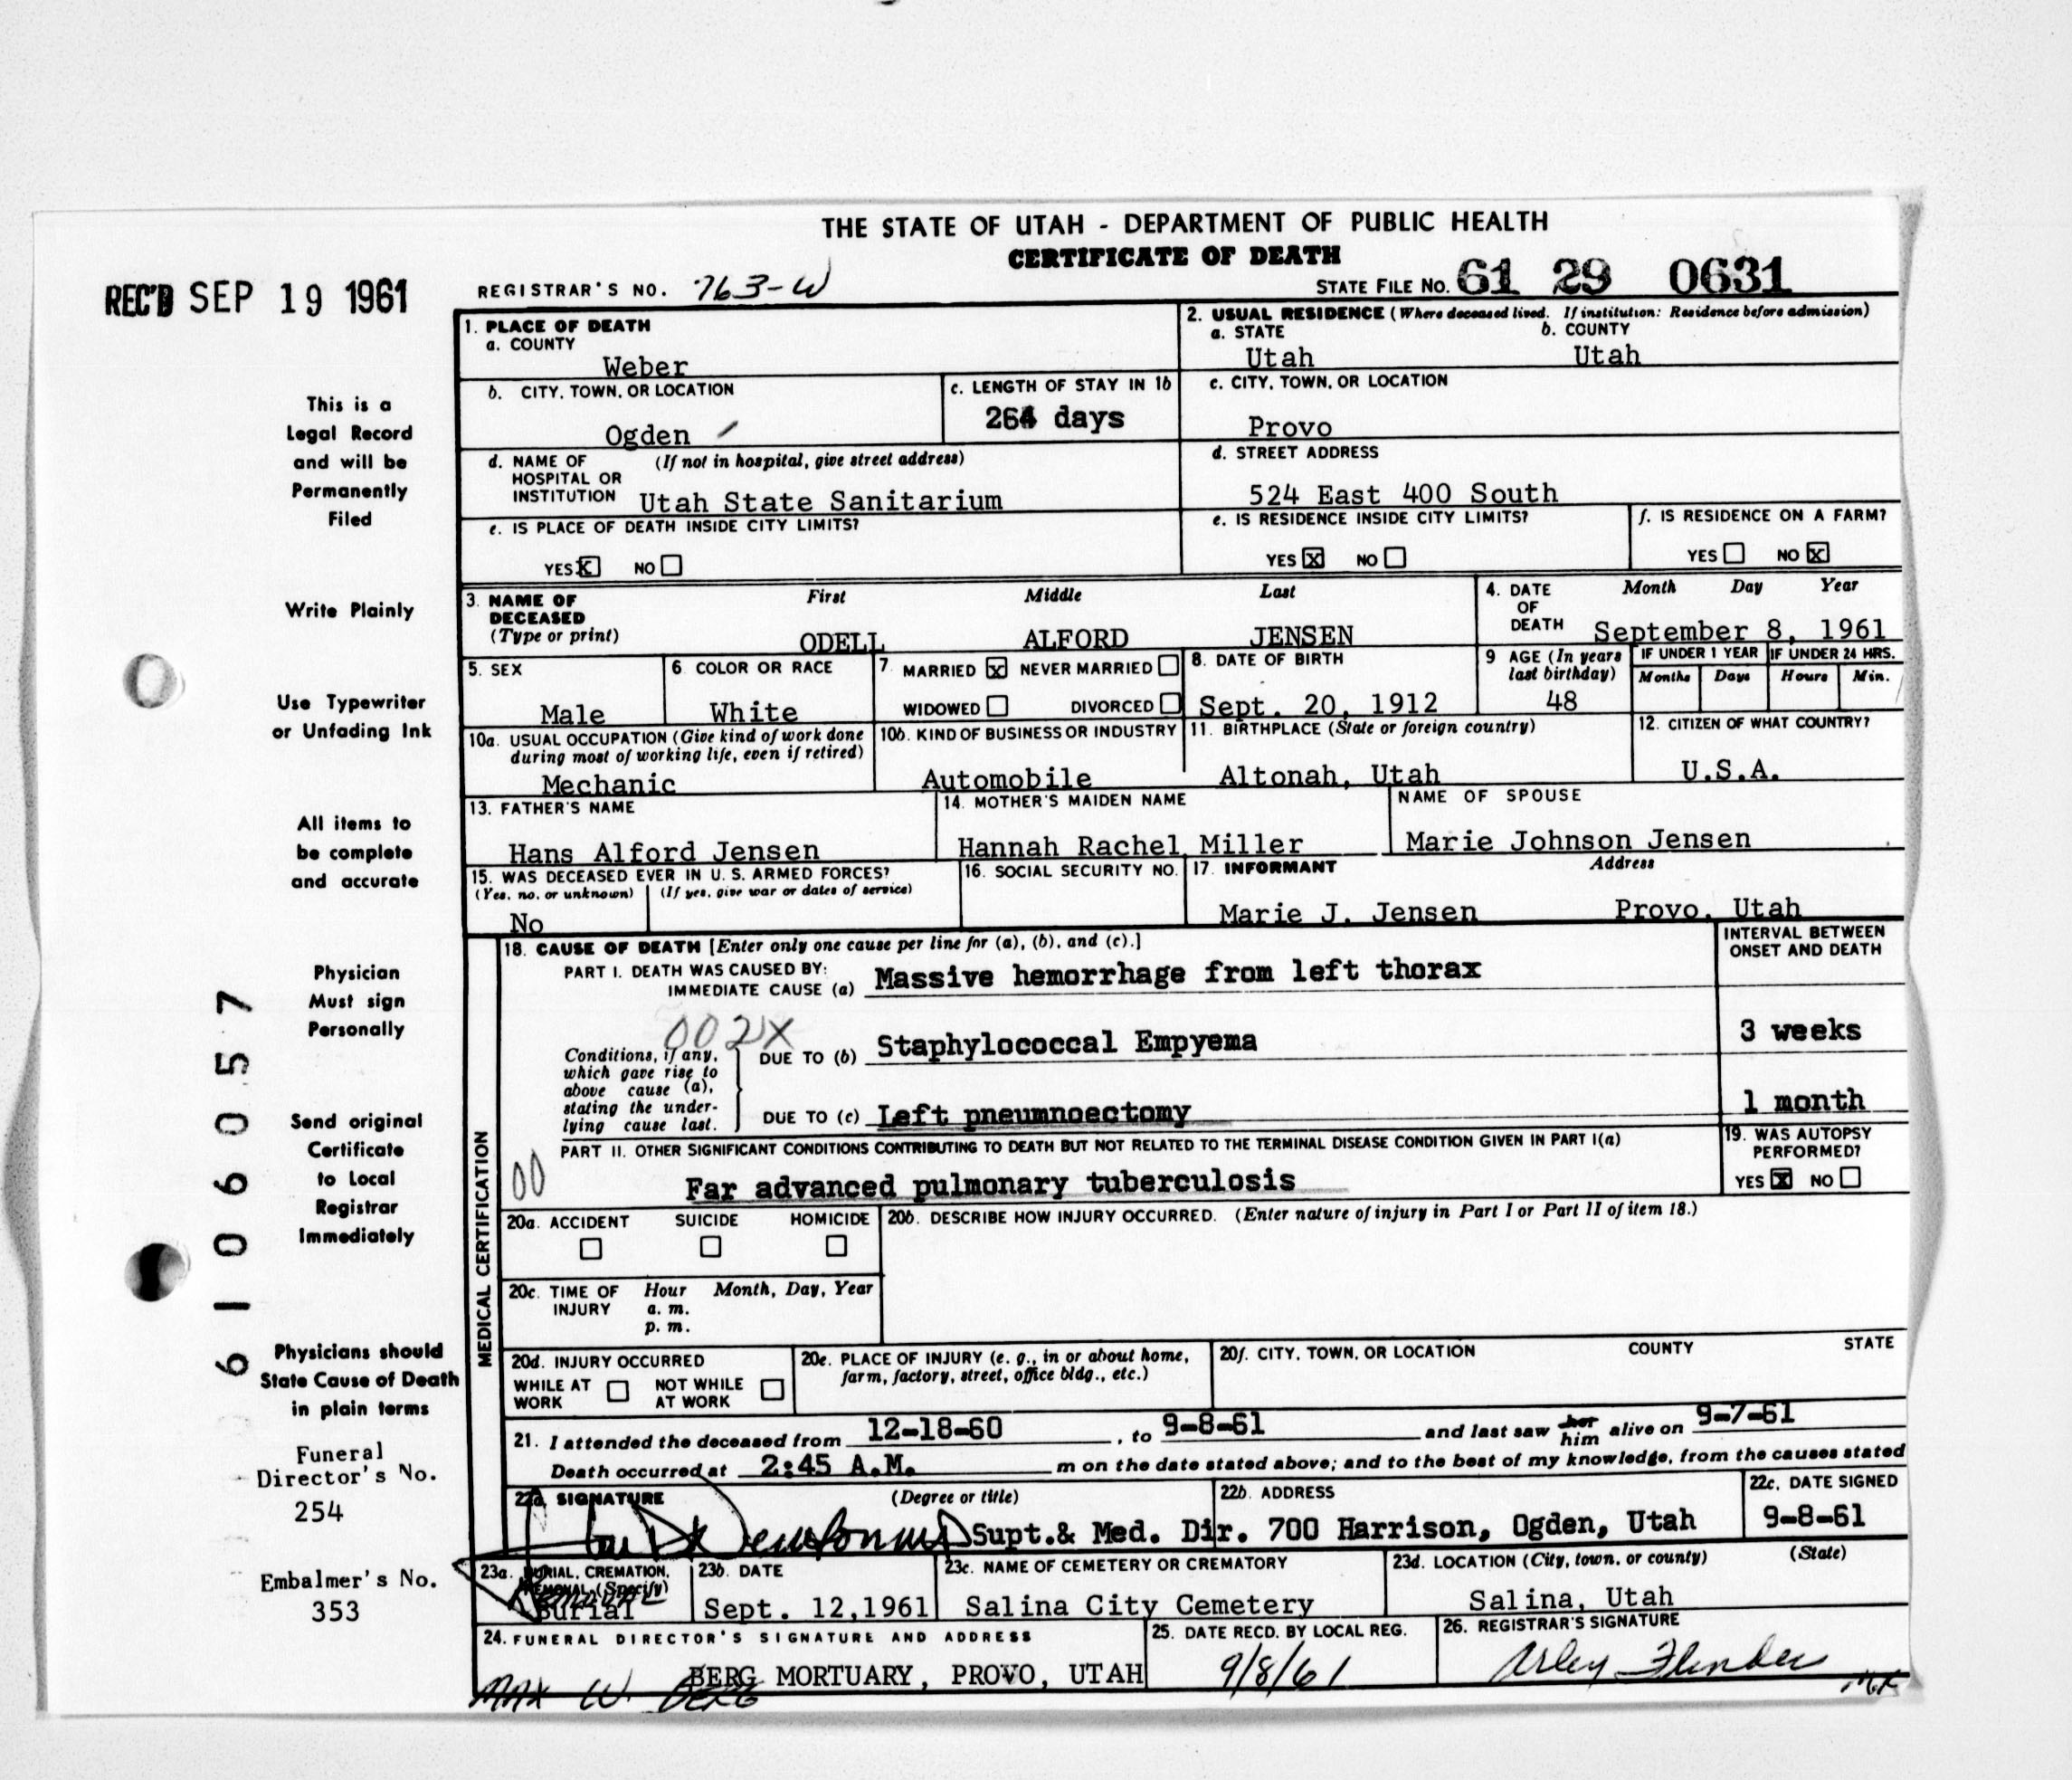 THE STATE OF UTAH - DEPARTMENT OF PUBLIC HEALTH
CERTIFICATE OF DEATH
REC'D SEP 19 1961
REGISTRAR'S NO. 763-W
STATE FILE NO. 61 29 0631
This is a
Legal Record
and will be
Permanently
Filed
Write Plainly
Use Typewriter
or Unfading Ink
All items to
be complete
and accurate
Physician
Must sign
Personally
Send original
Certificate
to Local
Registrar
Immediately
Physicians should
State Cause of Death
in plain terms
Funeral
Director's No.
254
Embalmer's No.
353
61 06057
1. PLACE OF DEATH
a. COUNTY
Weber
2. USUAL RESIDENCE (Where deceased lived. If institution: Residence before admission)
a. STATE b. COUNTY
Utah Utah
b. CITY, TOWN, OR LOCATION
Ogden
c. LENGTH OF STAY IN 1b
264 days
c. CITY, TOWN, OR LOCATION
Provo
d. NAME OF (If not in hospital, give street address)
HOSPITAL OR
INSTITUTION Utah State Sanitarium
d. STREET ADDRESS
524 East 400 South
e. IS PLACE OF DEATH INSIDE CITY LIMITS?
YES X NO
e. IS RESIDENCE INSIDE CITY LIMITS?
YES X NO
f. IS RESIDENCE ON A FARM?
YES NO X
3. NAME OF First Middle Last
DECEASED
(Type or print) ODELL ALFORD JENSEN
4. DATE Month Day Year
OF
DEATH September 8, 1961
5. SEX
Male
6 COLOR OR RACE
White
7 MARRIED X NEVER MARRIED
WIDOWED DIVORCED
8. DATE OF BIRTH
Sept. 20, 1912
9 AGE (In years
last birthday)
48
IF UNDER 1 YEAR IF UNDER 24 HRS.
Months Days Hours Min.
10a. USUAL OCCUPATION (Give kind of work done
during most of working life, even if retired)
Mechanic
10b. KIND OF BUSINESS OR INDUSTRY
Automobile
11. BIRTHPLACE (State or foreign country)
Altonah, Utah
12. CITIZEN OF WHAT COUNTRY?
U.S.A.
13. FATHER'S NAME
Hans Alford Jensen
14. MOTHER'S MAIDEN NAME
Hannah Rachel Miller
NAME OF SPOUSE
Marie Johnson Jensen
15. WAS DECEASED EVER IN U. S. ARMED FORCES?
(Yes, no, or unknown) (If yes, give war or dates of service)
No
16. SOCIAL SECURITY NO.
17. INFORMANT Address
Marie J. Jensen Provo, Utah
MEDICAL CERTIFICATION
18. CAUSE OF DEATH [Enter only one cause per line for (a), (b), and (c).]
INTERVAL BETWEEN
ONSET AND DEATH
PART I. DEATH WAS CAUSED BY:
IMMEDIATE CAUSE (a) Massive hemorrhage from left thorax
002X
Conditions, if any,
which gave rise to
above cause (a),
stating the under-
lying cause last.
DUE TO (b) Staphylococcal Empyema 3 weeks
DUE TO (c) Left pneumnoectomy 1 month
PART II. OTHER SIGNIFICANT CONDITIONS CONTRIBUTING TO DEATH BUT NOT RELATED TO THE TERMINAL DISEASE CONDITION GIVEN IN PART I(a)
00
Far advanced pulmonary tuberculosis
19. WAS AUTOPSY
PERFORMED?
YES X NO
20a. ACCIDENT SUICIDE HOMICIDE
20b. DESCRIBE HOW INJURY OCCURRED. (Enter nature of injury in Part I or Part II of item 18.)
20c. TIME OF Hour Month, Day, Year
INJURY a. m.
p. m.
20d. INJURY OCCURRED
WHILE AT NOT WHILE
WORK AT WORK
20e. PLACE OF INJURY (e. g., in or about home,
farm, factory, street, office bldg., etc.)
20f. CITY, TOWN, OR LOCATION COUNTY STATE
21. I attended the deceased from 12-18-60, to 9-8-61 and last saw her him alive on 9-7-61
Death occurred at 2:45 A.M. m on the date stated above; and to the best of my knowledge, from the causes stated
22a. SIGNATURE (Degree or title)
Supt.& Med. Dir.
22b. ADDRESS
700 Harrison, Ogden, Utah
22c. DATE SIGNED
9-8-61
23a. BURIAL, CREMATION,
REMOVAL (Specify)
Removal
Burial
23b. DATE
Sept. 12,1961
23c. NAME OF CEMETERY OR CREMATORY
Salina City Cemetery
23d. LOCATION (City, town, or county) (State)
Salina, Utah
24. FUNERAL DIRECTOR'S SIGNATURE AND ADDRESS
BERG MORTUARY, PROVO, UTAH
MAX W. BERG
25. DATE RECD. BY LOCAL REG.
9/8/61
26. REGISTRAR'S SIGNATURE
Arley Flinders
MK